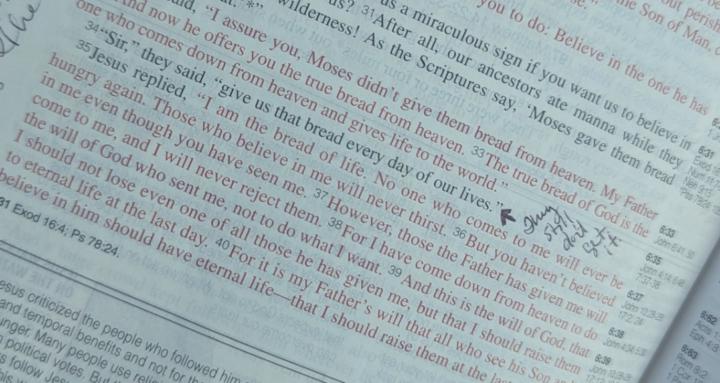 you to do: Believe in the one he has
us? 31After all, our ancestors ate manna while they
us a miraculous sign if you want us to believe in
wilderness! As the Scriptures say, ‘Moses gave them bread
said, “I assure you, Moses didn’t give them bread from heaven. My Father
And now he offers you the true bread from heaven. 33The true bread of God is the
one who comes down from heaven and gives life to the world.”
34“Sir,” they said, “give us that bread every day of our lives.”
they
still
didn't
get it
35Jesus replied, “I am the bread of life. No one who comes to me will ever be
hungry again. Those who believe in me will never thirst. 36But you haven’t believed
in me even though you have seen me. 37However, those the Father has given me will
come to me, and I will never reject them. 38For I have come down from heaven to do
the will of God who sent me, not to do what I want. 39And this is the will of God, that
I should not lose even one of all those he has given me, but that I should raise them
to eternal life at the last day. 40For it is my Father’s will that all who see his Son
believe in him should have eternal life—that I should raise them at the
31 Exod 16:4; Ps 78:24.
6:31
6:33
6:35
6:37
6:38
6:39
esus criticized the people who followed him
and temporal benefits and not for
unger. Many people use
political votes. But
follow
the Son of Man.
out perish
6:62
6:63